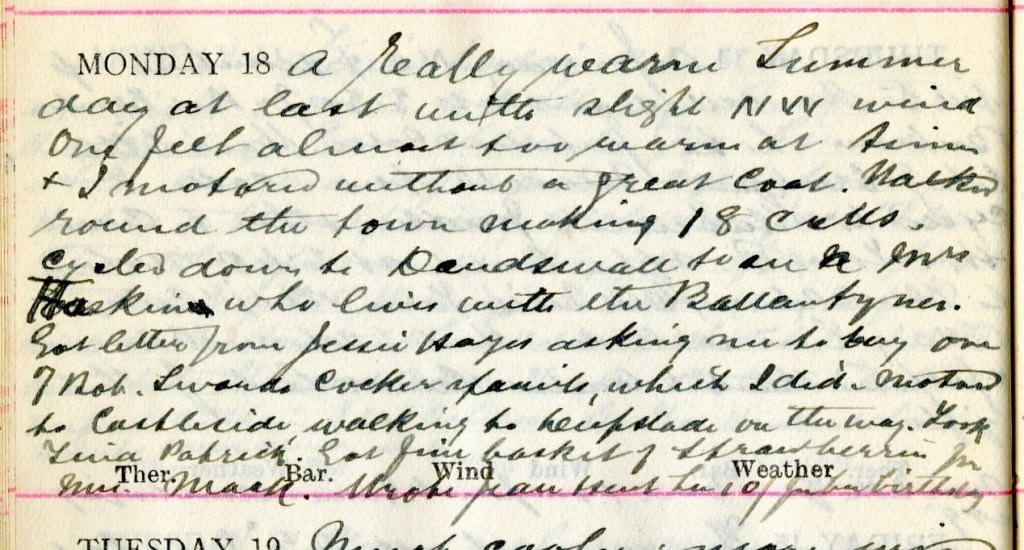 MONDAY 18 A really warm Summer
day at last with slight NW wind
One felt almost too warm at times
+ I motored without a great coat. Walked
round the town making 18 calls.
Cycled down to to see Mrs
Hoskins who lives with the Ballantynes.
Got letter from Jessie Hayes asking me to buy one
of Bob. Swan's Cocker spaniels, which I did. Motored
to Castleside walking to on the way. Took
Tina Patrick. Got fine basket of Strawberries from
Ther. Bar. Wind Weather
Mrs. Mack. Wrote Jean sent her 10/ for her birthday
TUESDAY 19 Much cooler